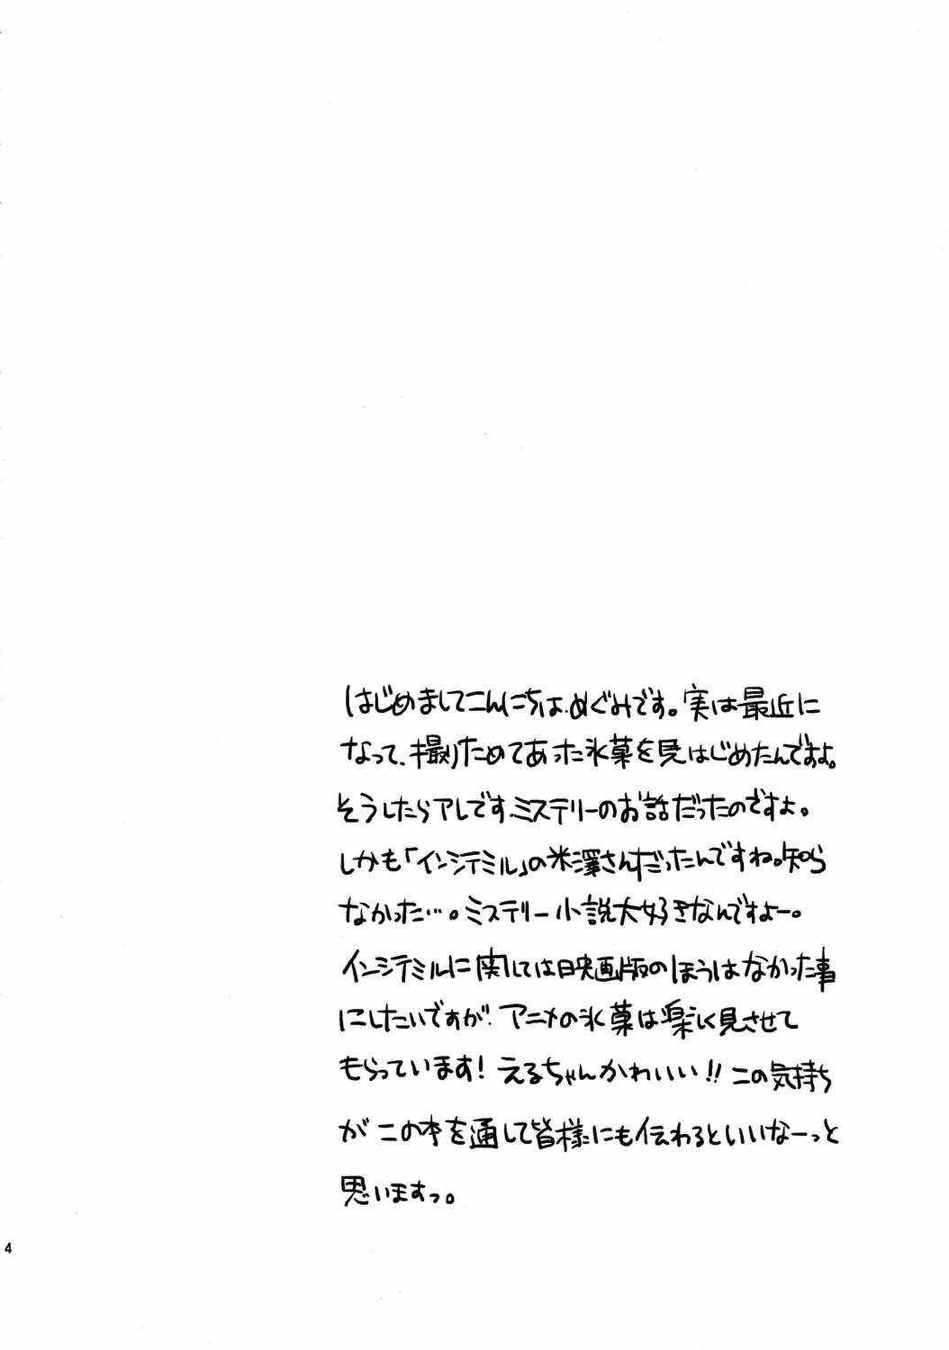 はじめましてこんにちは、めぐみです。実は最近に
なって、撮りためてあった氷菓を見はじめたんですよ。
そうしたらアレです、ミステリーのお話だったのですよ。
しかも「インシテミル」の米澤さんだったんですね。知ら
なかった…。ミステリー小説大好きなんですよー。
インシテミルに関しては映画版のほうはなかった事
にしたいですが、アニメの氷菓は楽しく見させて
もらっています！えるちゃんかわいい!!この気持ち
がこの本を通して皆様にも伝わるといいなーっと
思いますっ。
4